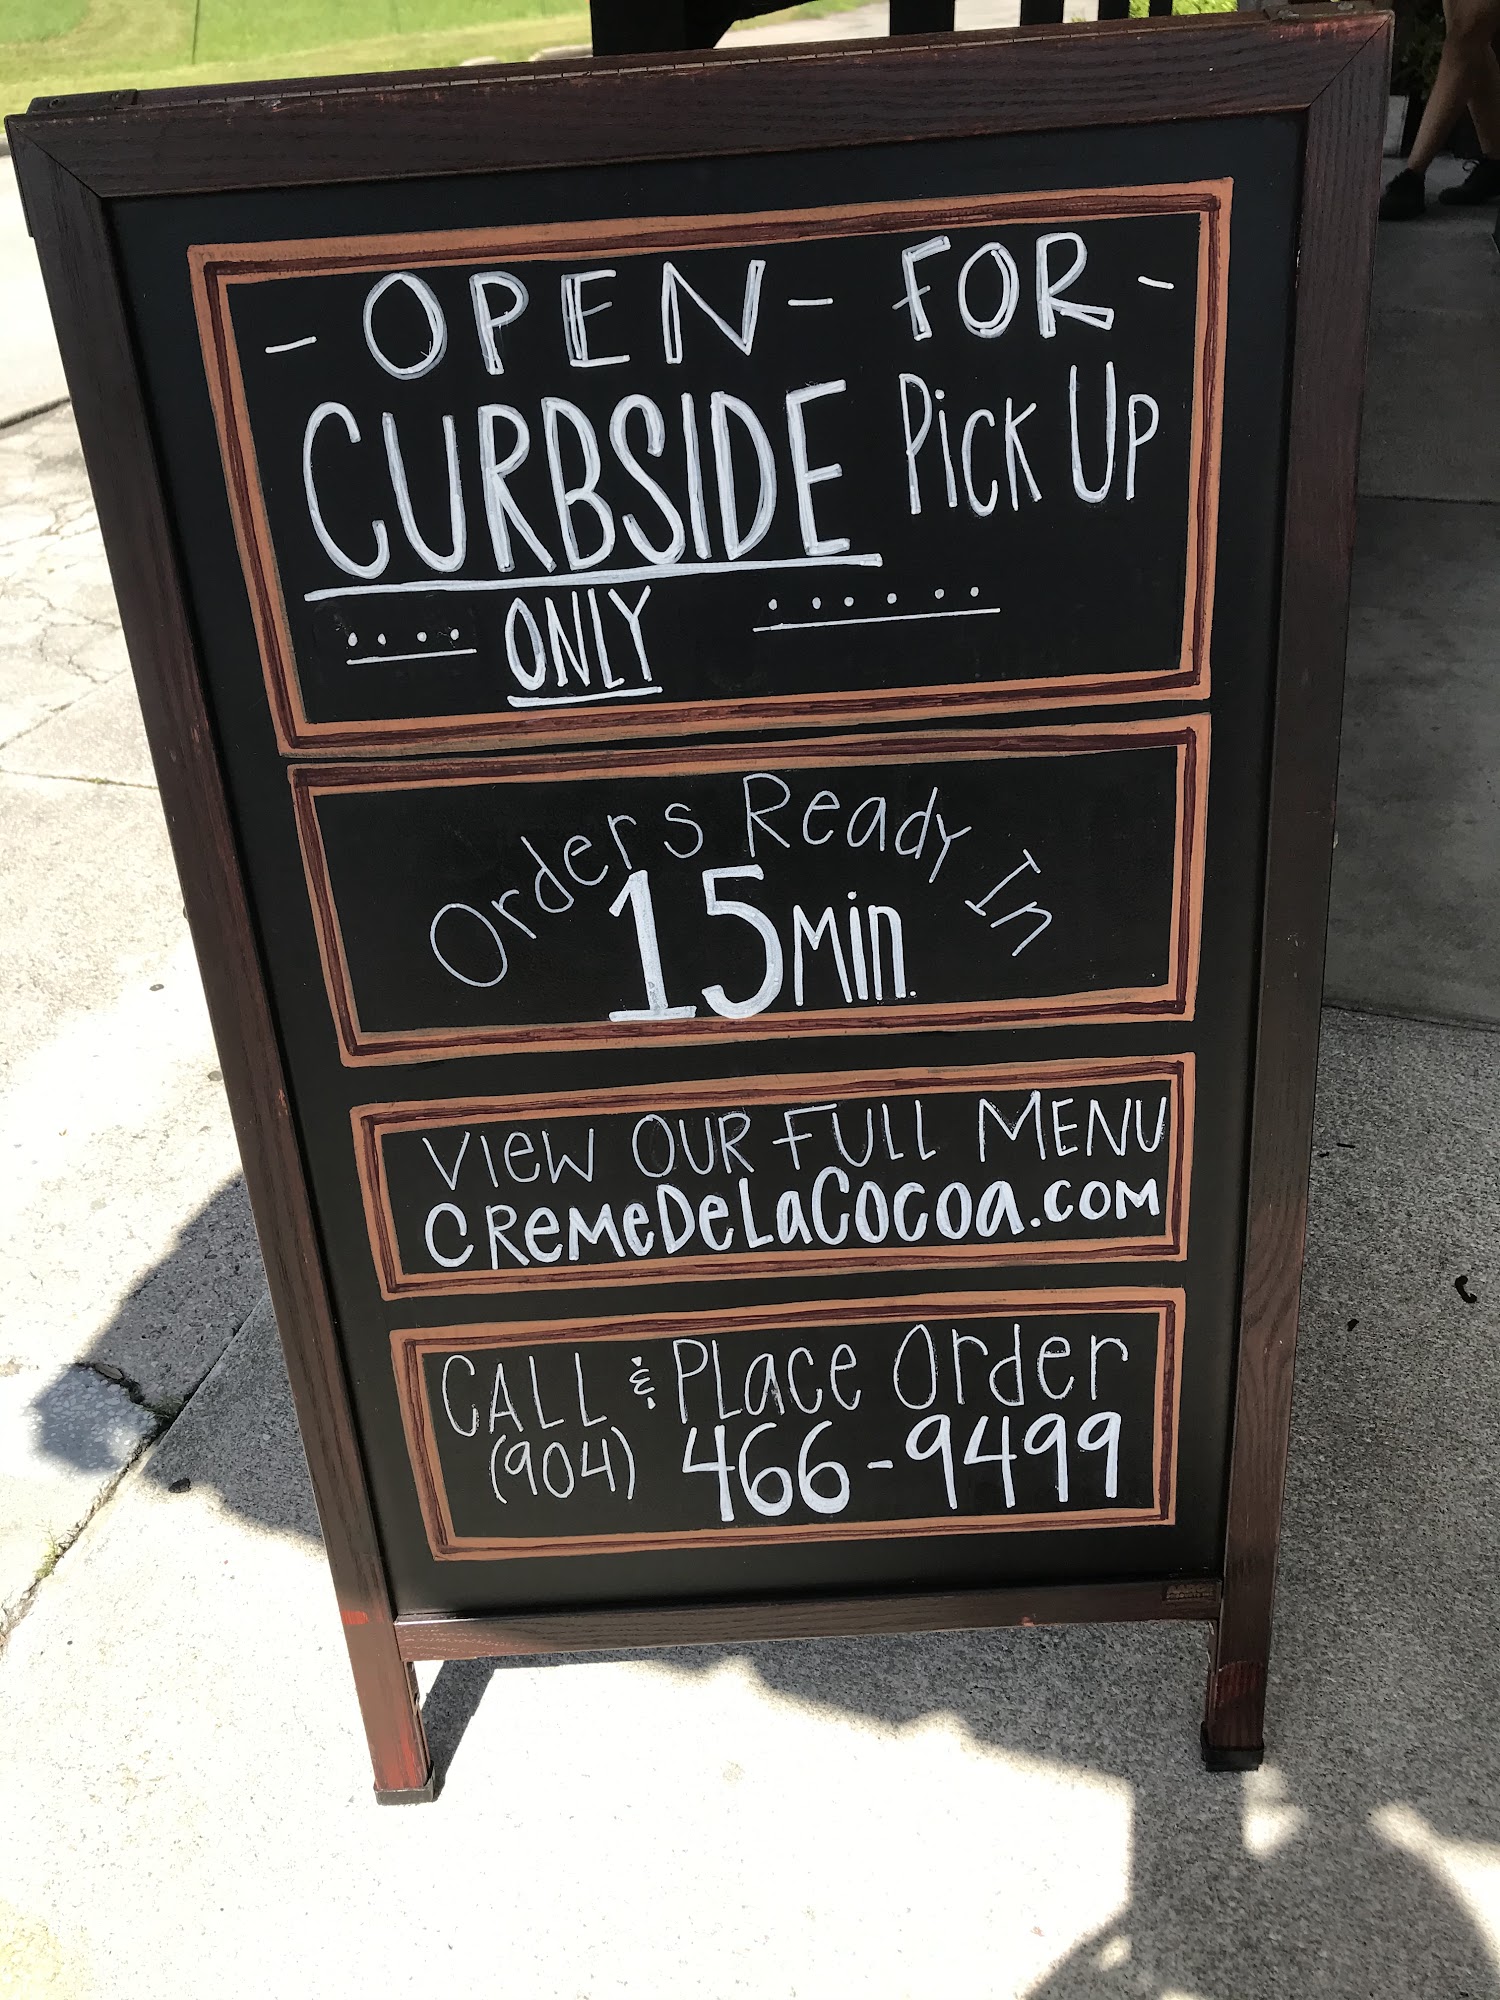 - OPEN - FOR -
CURBSIDE PICK UP
ONLY
Orders Ready In
15 Min.
VIEW OUR FULL MENU
CREMEDELACOCOA.COM
CALL & PLACE Order
(904) 466-9499